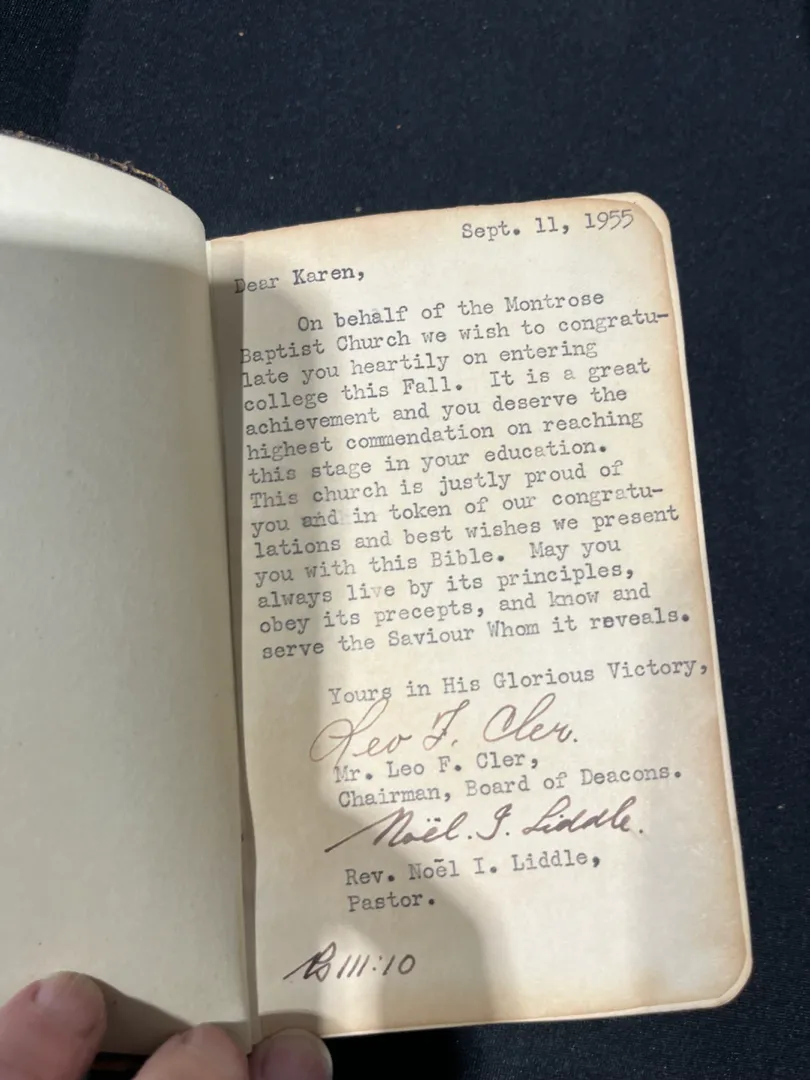 Sept. 11, 1955
Dear Karen,
On behalf of the Montrose
Baptist Church we wish to congratu-
late you heartily on entering
college this Fall. It is a great
achievement and you deserve the
highest commendation on reaching
this stage in your education.
This church is justly proud of
you and in token of our congratu-
lations and best wishes we present
you with this Bible. May you
always live by its principles,
obey its precepts, and know and
serve the Saviour Whom it reveals.
Yours in His Glorious Victory,
Leo F. Cler.
Mr. Leo F. Cler,
Chairman, Board of Deacons.
Noël. I. Liddle.
Rev. Noēl I. Liddle,
Pastor.
Ps 111:10